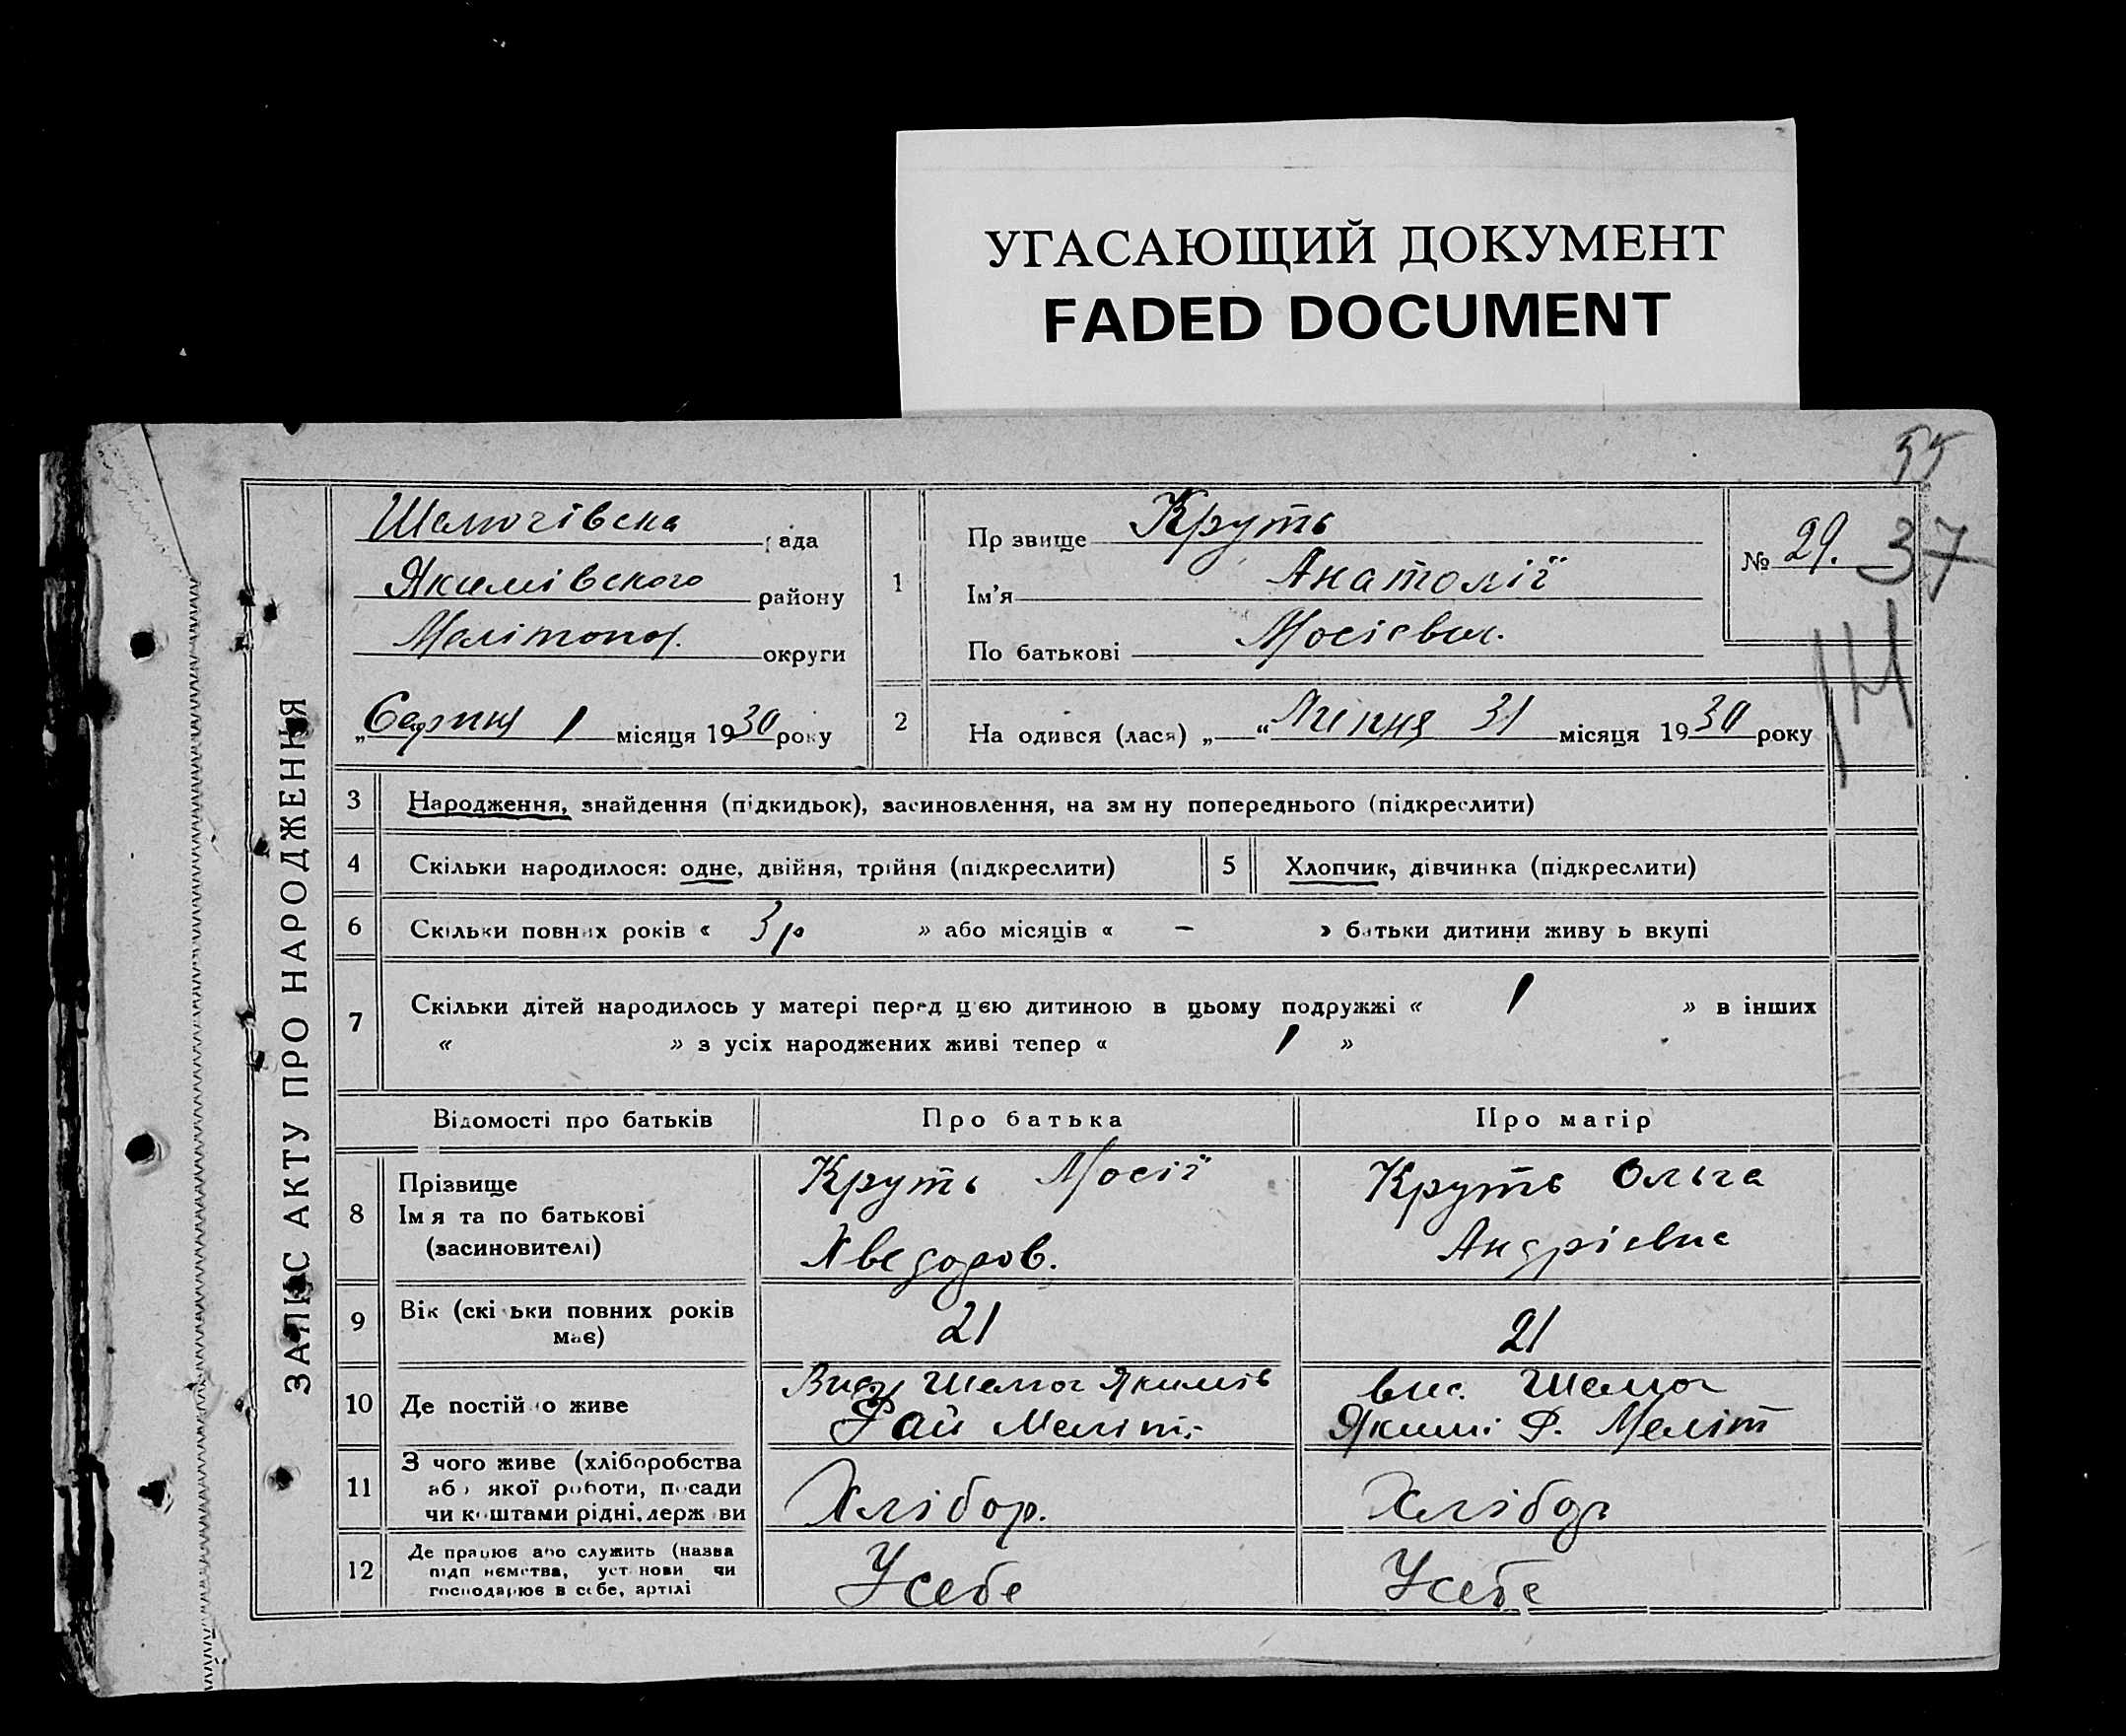 УГАСАЮЩИЙ ДОКУМЕНТ
FADED DOCUMENT
55
ЗАПИС АКТУ ПРО НАРОДЖЕННЯ
рада
Якимівского району
Мелітопол. округи
„Серпня 1 місяця 1930 року
1
Прізвище Круть
Ім'я Анатолій
По батькові Мосієвич.
№ 29. 37
2
На одився (лася) „ “ Липня 31 місяця 1930 року
3 Народження, знайдення (підкидьок), засиновлення, на зм ну попереднього (підкреслити)
4 Скільки народилося: одне, двійня, трійня (підкреслити)
5 Хлопчик, дівчинка (підкреслити)
6 Скільки повних років « 3 р » або місяців « — » батьки дитини живу ь вкупі
7 Скільки дітей народилось у матері перед цією дитиною в цьому подружжі « 1 » в інших
« » з усіх народжених живі тепер « 1 »
Відомості про батьків Про батька Про матір
8 Прізвище
Імя та по батькові
(засиновителі)
Круть Мосій
Хведоров.
Круть Ольга
Андрієвна
9 Вік (скільки повних років
має)
21
21
10 Де постійно живе
Якимів
Рай Меліт.
Якимі Р. Меліт
11 З чого живе (хліборобства
або якої роботи, посади
чи коштами рідні, держави
Хлібор.
Хлібор
12 Де працює або служить (назва
підп иємства, уст нови чи
господарює в себе, артілі
Усебе
Усебе